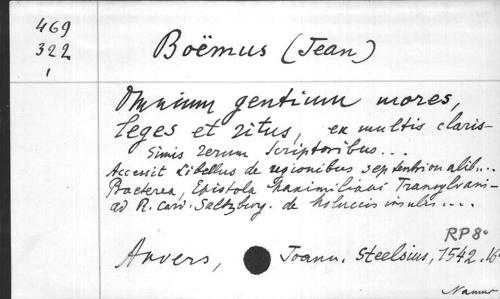 469
322
1
Boëmus (Jean)
Omnium gentium mores,
leges et ritus, ex multis claris-
simis rerum scriptoribus...
Accessit Libellus de regionibus septentrionalib...
Praeterea, Epistola Maximiliani Transylvani-
ad R. Card. Saltzburg. de Moluccis insulis....
RP 8°
Anvers, Joann. Steelsius, 1542. 16°
Namur